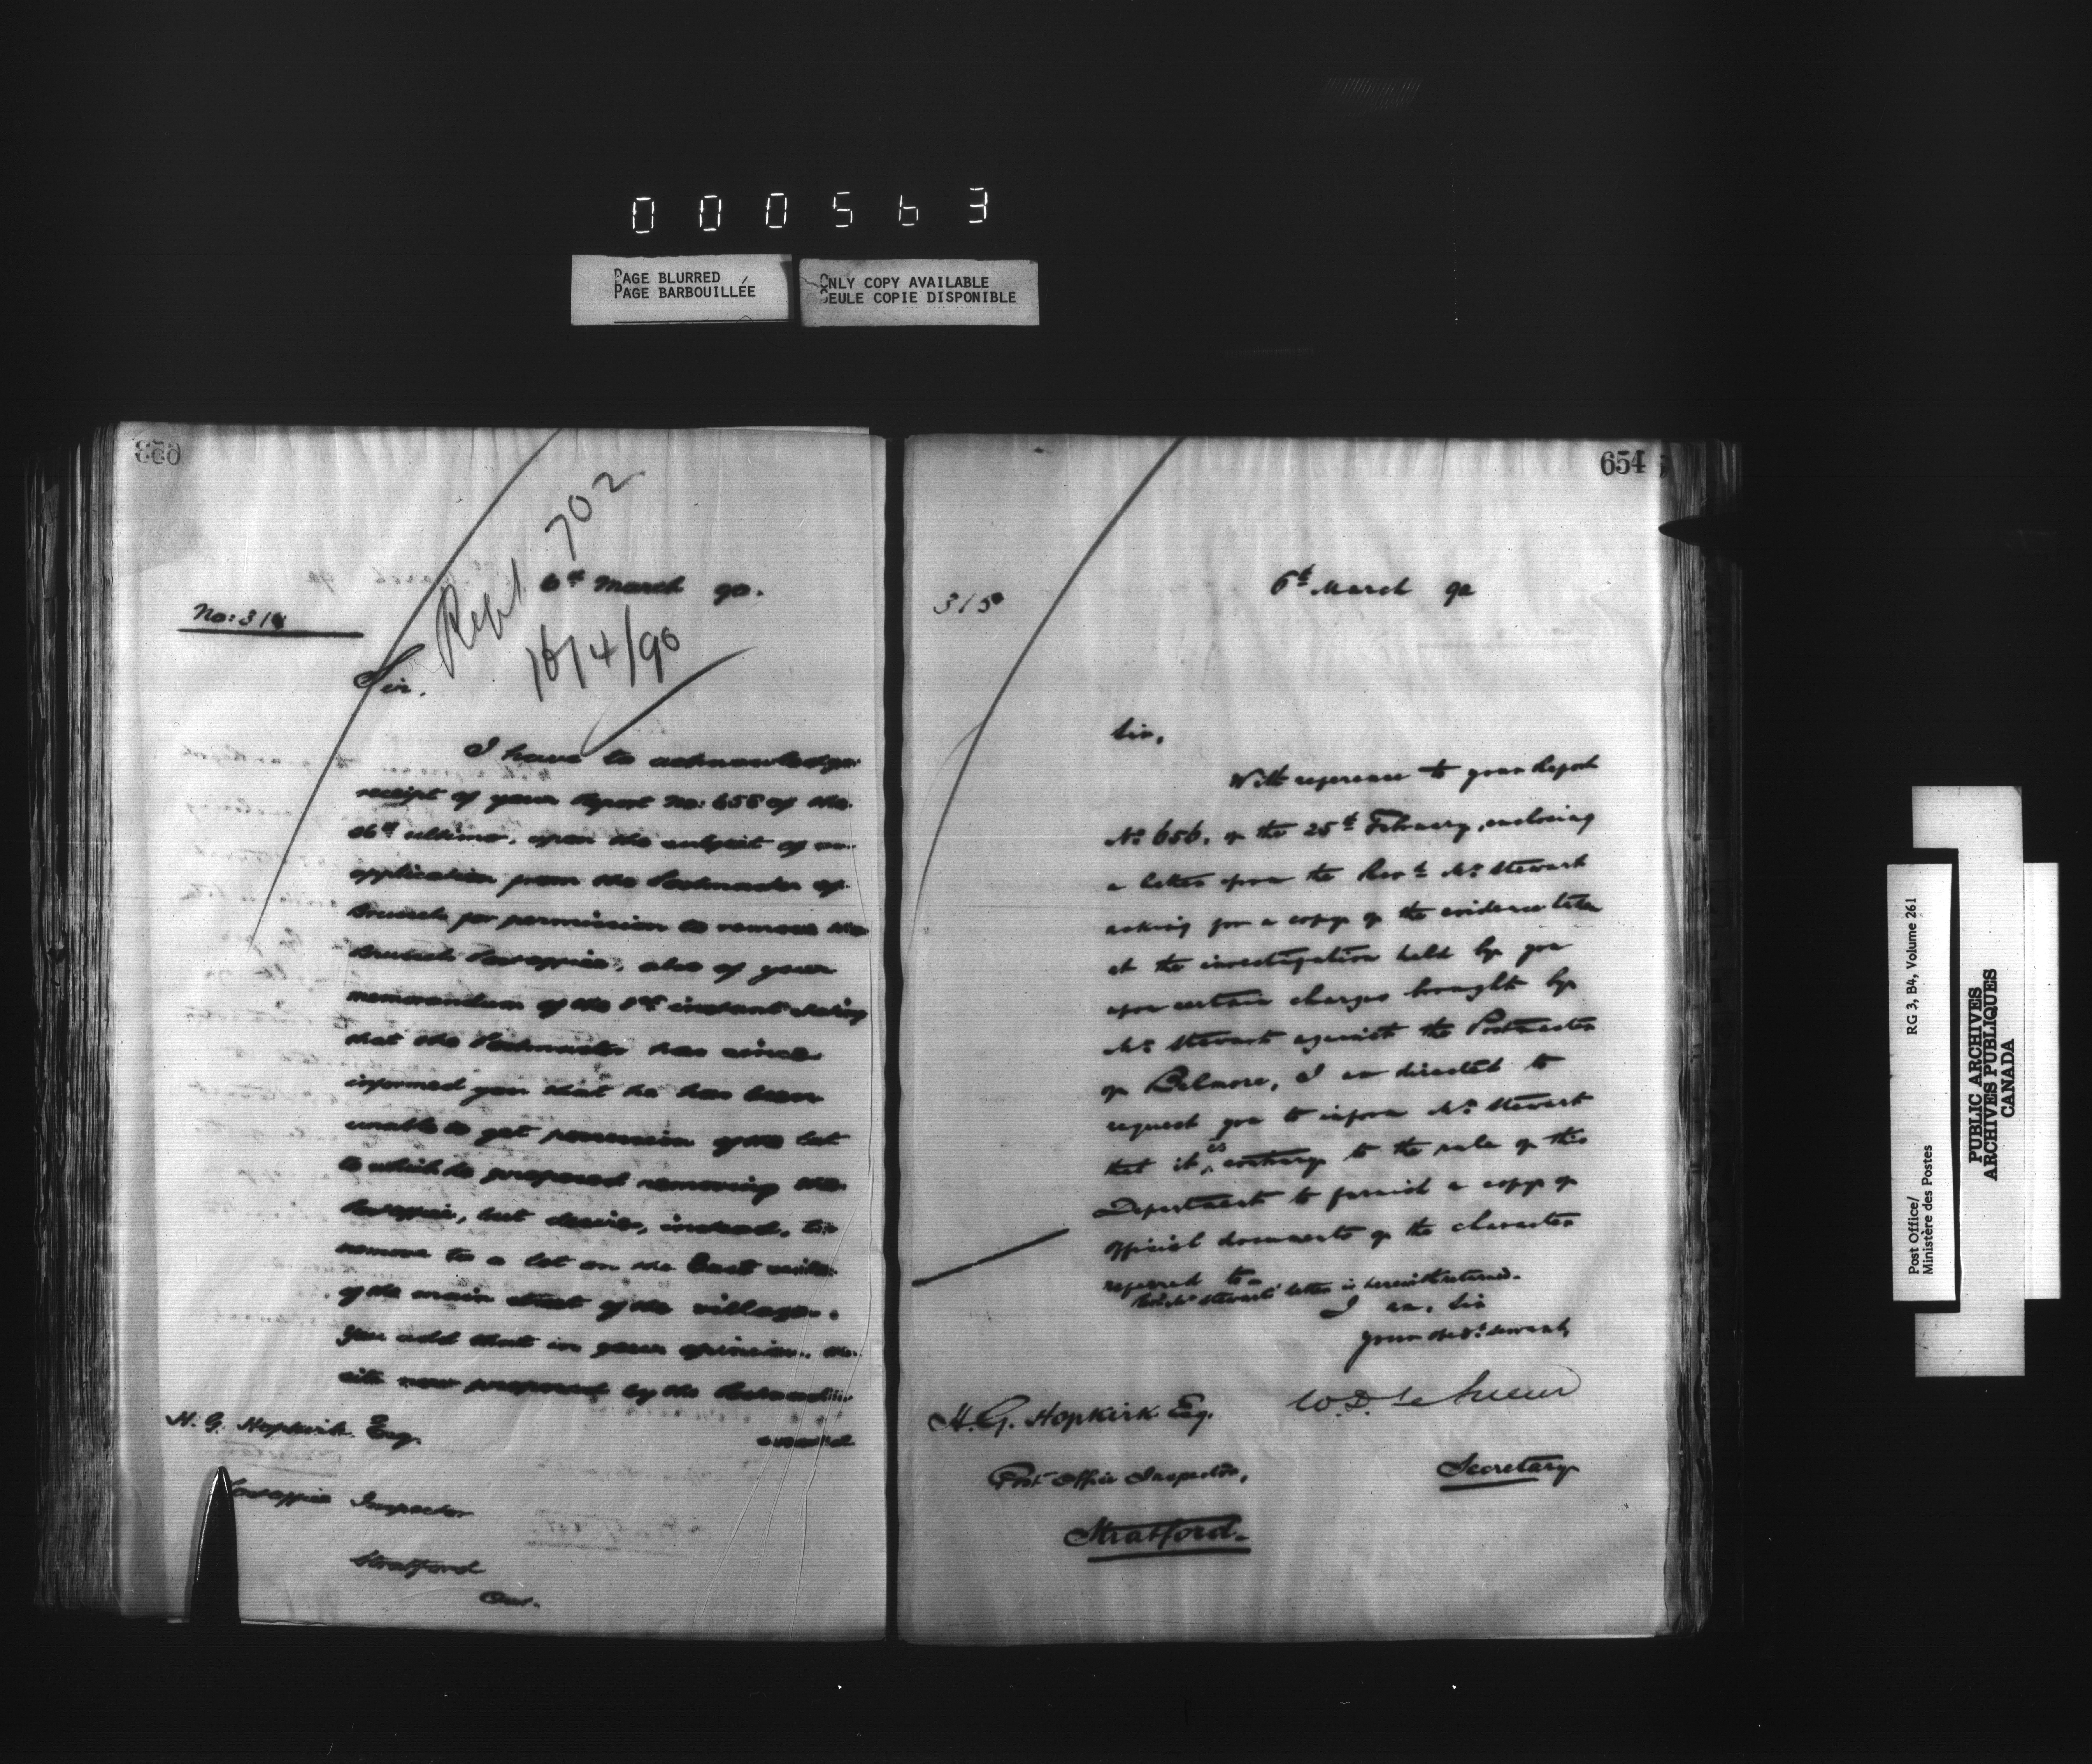 000563
PAGE BLURRED
PAGE BARBOUILLÉE
ONLY COPY AVAILABLE
SEULE COPIE DISPONIBLE
Repl 702
6th March 90.
No: 314
16/4/90
Sir.
I have to acknowledge
receipt of your Report No: 655 of the
26th ultimo, upon the subject of an
application from the Postmaster of
Brussels for permission to remove the
Brussels Post office, also of your
memorandum of the 1st instant stating
that the Postmaster has since
informed you that he has been
unable to get possession of the lot
to which he proposed removing the
Post office, but desires, instead, to
remove to a lot on the East side
of the main street of the village.
You add that in your opinion, the
site now proposed by the Postmaster
H. G. Hopkirk Esq.
Post office Inspector
Stratford
Ont.
654
315
6th March 90
Sir,
With reference to your Report
No 656, of the 25th February, enclosing
a letter from the Revd. Mr Stewart
asking for a copy of the evidence taken
at the investigation held by you
upon certain charges brought by
Mr Stewart against the Postmaster
of Belmore, I am directed to
request you to inform Mr Stewart
that it is contrary to the rule of this
Department to furnish a copy of
official documents of the character
referred to.
Revd Mr Stewart's letter is herewith returned.
I am, Sir
Your obedt. servant,
W. D. Le Sueur
Secretary
H. G. Hopkirk Esq.
Post Office Inspector,
Stratford.
Post Office/
Ministère des Postes
RG 3, B4, Volume 261
PUBLIC ARCHIVES
ARCHIVES PUBLIQUES
CANADA